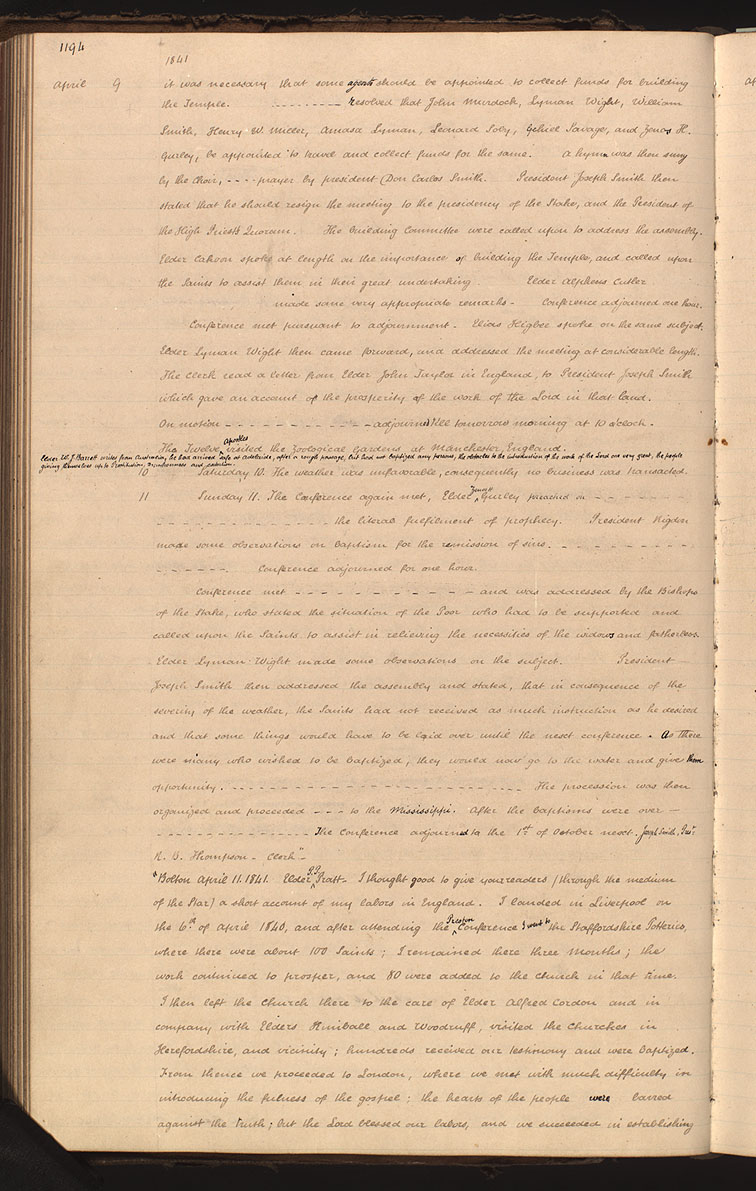 1194
1841
April 9 it was necessary that some agents should be appointed to collect funds for building
the Temple. - - - - - - - - - Resolved that John Murdock, Lyman Wight, William
Smith, Henry W. Miller, Amasa Lyman, Leonard Soby, Gehiel Savage, and Zenos H.
Gurley, be appointed to travel and collect funds for the same. A hymn was then sung
by the choir, - - - - prayer by president Don Carlos Smith. President Joseph Smith then
stated that he should resign the meeting to the presidency of the Stake, and the President of
the High Priests Quorum. The building Committee were called upon to address the assembly.
Elder Cahoon spoke at length on the importance of building the Temple, and called upon
the Saints to assist them in their great undertaking. Elder Alpheus Cutler
made some very appropriate remarks - Conference adjourned one hour.
Conference met pursuant to adjournment - Elias Higbee spoke on the same subject.
Elder Lyman Wight then came forward, and addressed the meeting at considerable length.
The Clerk read a letter from Elder John Taylor in England, to President Joseph Smith
which gave an account of the prosperity of the work of the Lord in that land.
On motion - - - - - - - - - - - - - - adjourned till tomorrow morning at 10 o'clock.
The Twelve Apostles visited the Zoological Gardens at Manchester England.
Elder W. J. Barrett writes from Australia, he has arrived safe at Adelaide, after a rough passage, but had not baptized any persons, the obstacles to the introduction of the work of the Lord are very great, the people
giving themselves up to Prostitution, Drunkenness and
10 Saturday 10. The weather was unfavorable, consequently no business was transacted.
11 Sunday 11. The Conference again met, Elder Zenos H Gurley preached on - - - - - - -
- - - - - - - - - - - - - the literal fulfilment of prophecy. President Rigdon
made some observations on baptism for the remission of sins. - - - - - - - - - -
- - - - - - - Conference adjourned for one hour.
Conference met - - - - - - - - - - - - - and was addressed by the Bishops
of the Stake, who stated the situation of the Poor who had to be supported and
called upon the Saints to assist in relieving the necessities of the widows and fatherless.
Elder Lyman Wight made some observations on the subject. President
Joseph Smith then addressed the assembly and stated, that in consequence of the
severity of the weather, the Saints had not received as much instruction as he desired
and that some things would have to be laid over until the next conference. As there
were many who wished to be baptized, they would now go to the water and give them
opportunity. - - - - - - - - - - - - - - - - - - - - - - - The procession was then
organized and proceeded - - - to the Mississippi. After the baptisms were over -
- - - - - - - - - - - - The Conference adjourned to the 1st of October next. Joseph Smith, Prest.
R. B. Thompson - Clerk"
"Bolton April 11. 1841. Elder P. P. Pratt - I thought good to give your readers (through the medium
of the Star) a short account of my labors in England. I landed in Liverpool on
the 6th of April 1840, and after attending the Preston Conference I went to the Staffordshire Potteries,
where there were about 100 Saints; I remained there three Months; the
work continued to prosper, and 80 were added to the Church in that time.
I then left the Church there to the care of Elder Alfred Cordon and in
company with Elders Kimball and Woodruff, visited the Churches in
Herefordshire, and vicinity; hundreds received our testimony and were baptized.
From thence we proceeded to London, where we met with much difficulty in
introducing the fulness of the gospel; the hearts of the people were barred
against the Truth; but the Lord blessed our labors, and we succeeded in establishing